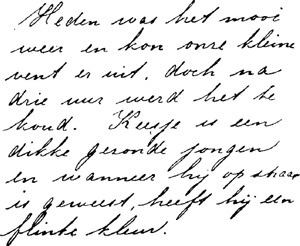 Heden was het mooi
weer en kon onze kleine
vent er uit, doch na
drie uur werd het te
koud. Keesje is een
dikke gezonde jongen
en wanneer hij op straat
is geweest, heeft hij een
flinke kleur.